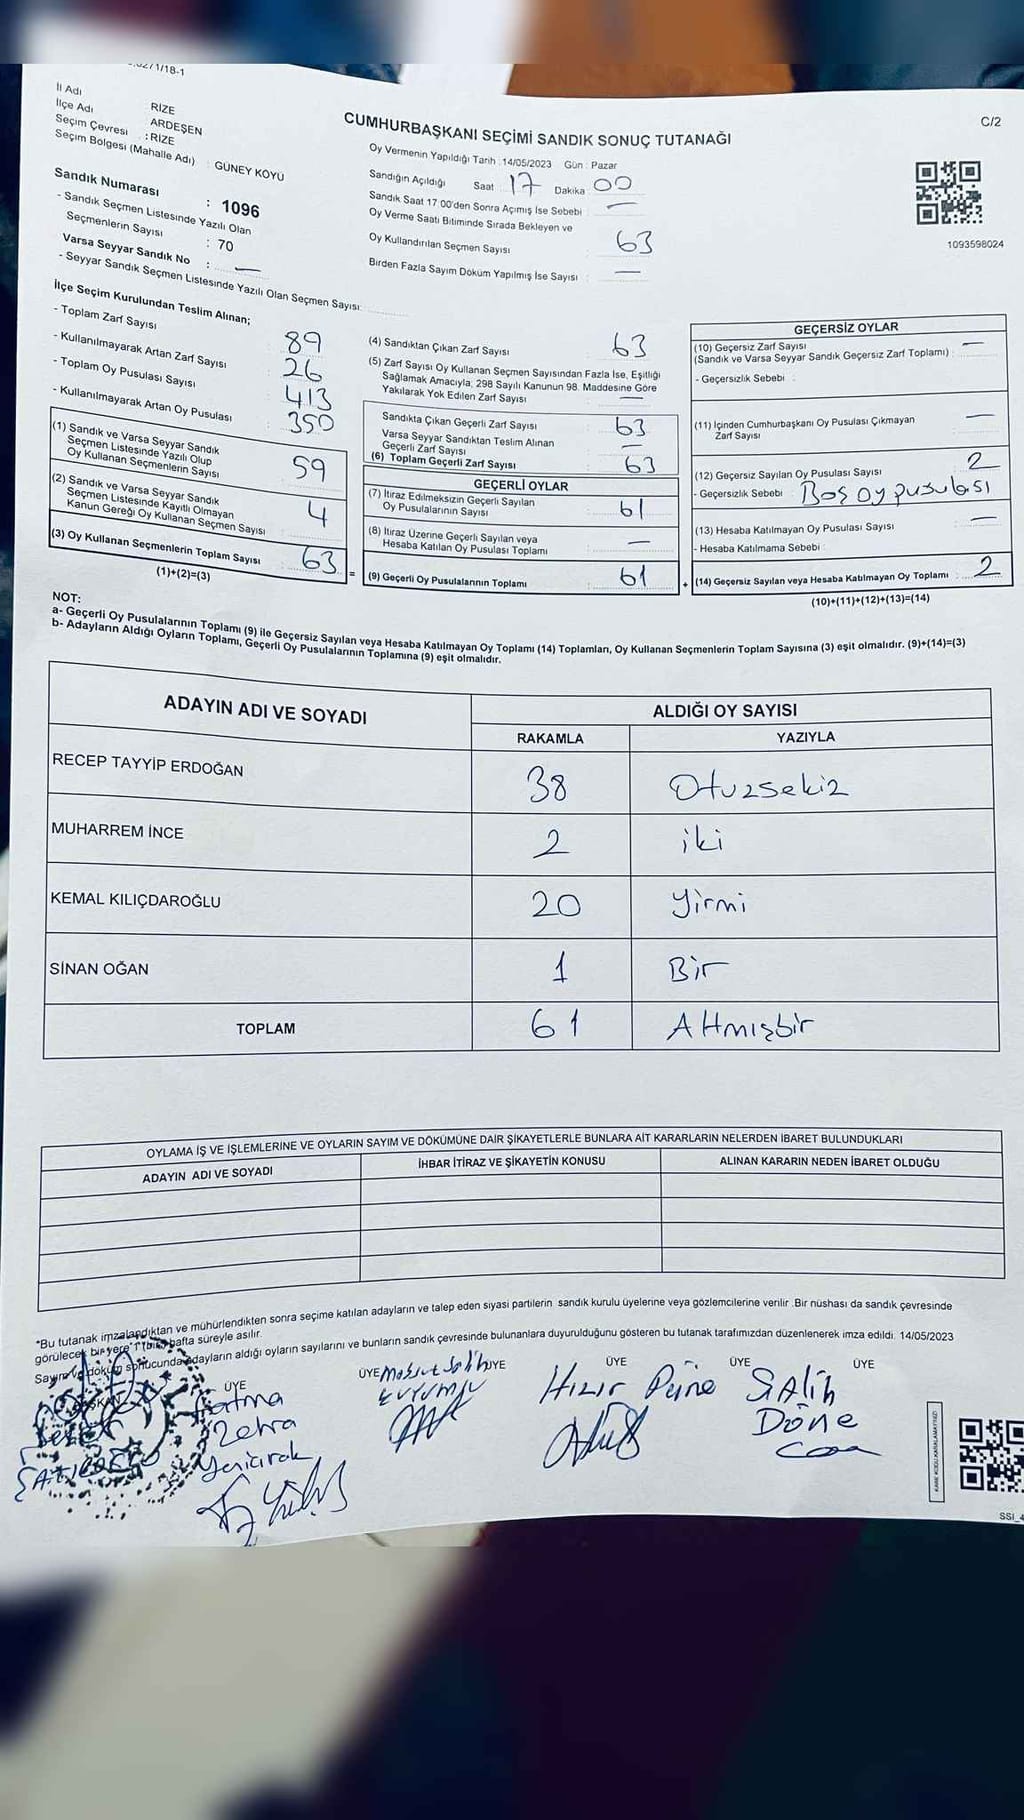 İl Adı : RİZE
İlçe Adı : ARDEŞEN
Seçim Çevresi : RİZE
Seçim Bölgesi (Mahalle Adı) : GÜNEY KÖYÜ
Sandık Numarası : 1096
- Sandık Seçmen Listesinde Yazılı Olan
Seçmenlerin Sayısı : 70
Varsa Seyyar Sandık No : —
- Seyyar Sandık Seçmen Listesinde Yazılı Olan Seçmen Sayısı:
CUMHURBAŞKANI SEÇİMİ SANDIK SONUÇ TUTANAĞI
C/2
Oy Vermenin Yapıldığı Tarih : 14/05/2023 Gün : Pazar
Sandığın Açıldığı Saat : 17 Dakika : 00
Sandık Saat 17 00'den Sonra Açımış İse Sebebi : —
Oy Verme Saati Bitiminde Sırada Bekleyen ve
Oy Kullandırılan Seçmen Sayısı : 63
Birden Fazla Sayım Döküm Yapılmış İse Sayısı : —
1093598024
İlçe Seçim Kurulundan Teslim Alınan;
- Toplam Zarf Sayısı 89
- Kullanılmayarak Artan Zarf Sayısı 26
- Toplam Oy Pusulası Sayısı 413
- Kullanılmayarak Artan Oy Pusulası 350
(1) Sandık ve Varsa Seyyar Sandık
Seçmen Listesinde Yazılı Olup
Oy Kullanan Seçmenlerin Sayısı 59
(2) Sandık ve Varsa Seyyar Sandık
Seçmen Listesinde Kayıtlı Olmayan
Kanun Gereği Oy Kullanan Seçmen Sayısı 4
(3) Oy Kullanan Seçmenlerin Toplam Sayısı 63 =
(1)+(2)=(3)
(4) Sandıktan Çıkan Zarf Sayısı : 63
(5) Zarf Sayısı Oy Kullanan Seçmen Sayısından Fazla İse, Eşitliği
Sağlamak Amacıyla; 298 Sayılı Kanunun 98. Maddesine Göre
Yakılarak Yok Edilen Zarf Sayısı : —
Sandıkta Çıkan Geçerli Zarf Sayısı : 63
Varsa Seyyar Sandıktan Teslim Alınan
Geçerli Zarf Sayısı : —
(6) Toplam Geçerli Zarf Sayısı : 63
GEÇERLİ OYLAR
(7) İtiraz Edilmeksizin Geçerli Sayılan
Oy Pusulalarının Sayısı : 61
(8) İtiraz Üzerine Geçerli Sayılan veya
Hesaba Katılan Oy Pusulası Toplamı : —
(9) Geçerli Oy Pusulalarının Toplamı : 61 +
GEÇERSİZ OYLAR
(10) Geçersiz Zarf Sayısı —
(Sandık ve Varsa Seyyar Sandık Geçersiz Zarf Toplamı) :
- Geçersizlik Sebebi :
(11) İçinden Cumhurbaşkanı Oy Pusulası Çıkmayan
Zarf Sayısı : —
(12) Geçersiz Sayılan Oy Pusulası Sayısı : 2
- Geçersizlik Sebebi : Boş oy pusulası
(13) Hesaba Katılmayan Oy Pusulası Sayısı : —
- Hesaba Katılmama Sebebi :
(14) Geçersiz Sayılan veya Hesaba Katılmayan Oy Toplamı : 2
(10)+(11)+(12)+(13)=(14)
NOT:
a- Geçerli Oy Pusulalarının Toplamı (9) ile Geçersiz Sayılan veya Hesaba Katılmayan Oy Toplamı (14) Toplamları, Oy Kullanan Seçmenlerin Toplam Sayısına (3) eşit olmalıdır. (9)+(14)=(3)
b- Adayların Aldığı Oyların Toplamı, Geçerli Oy Pusulalarının Toplamına (9) eşit olmalıdır.
ADAYIN ADI VE SOYADI ALDIĞI OY SAYISI
RAKAMLA YAZIYLA
RECEP TAYYİP ERDOĞAN 38 Otuzsekiz
MUHARREM İNCE 2 iki
KEMAL KILIÇDAROĞLU 20 Yirmi
SİNAN OĞAN 1 Bir
TOPLAM 61 Altmışbir
OYLAMA İŞ VE İŞLEMLERİNE VE OYLARIN SAYIM VE DÖKÜMÜNE DAİR ŞİKAYETLERLE BUNLARA AİT KARARLARIN NELERDEN İBARET BULUNDUKLARI
ADAYIN ADI VE SOYADI İHBAR İTİRAZ VE ŞİKAYETİN KONUSU ALINAN KARARIN NEDEN İBARET OLDUĞU
*Bu tutanak imzalandıktan ve mühürlendikten sonra seçime katılan adayların ve talep eden siyasi partilerin sandık kurulu üyelerine veya gözlemcilerine verilir .Bir nüshası da sandık çevresinde
görülecek bir yere 1 (bir) hafta süreyle asılır.
Sayım ve döküm sonucunda adayların aldığı oyların sayılarını ve bunların sandık çevresinde bulunanlara duyurulduğunu gösteren bu tutanak tarafımızdan düzenlenerek imza edildi. 14/05/2023
ÜYE ÜYE ÜYE ÜYE ÜYE ÜYE
Fatma
Zehra
Hızır Döne
Salih
Döne